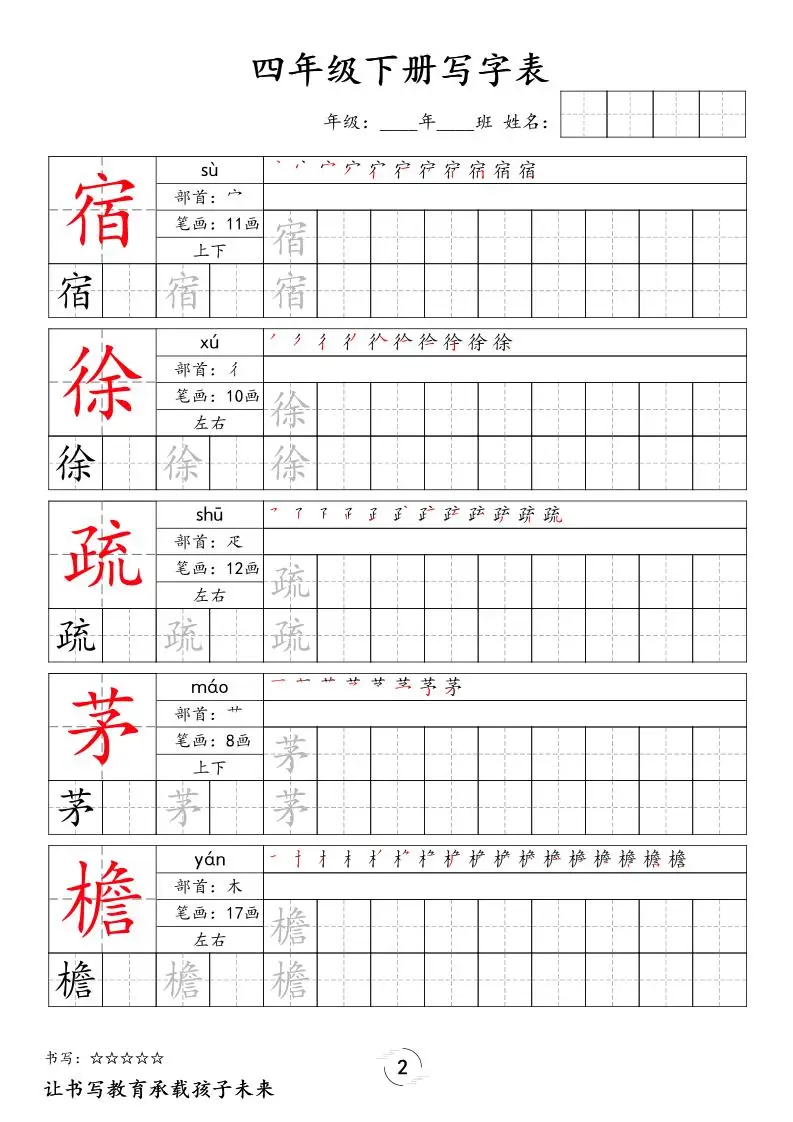 四年级下册写字表
年级：____年____班 姓名：
宿 sù
部首：宀
笔画：11画 宿
上下
宿 宿 宿
徐 xú
部首：彳
笔画：10画 徐
左右
徐 徐 徐
疏 shū
部首：疋
笔画：12画 疏
左右
疏 疏 疏
茅 máo
部首：艹
笔画：8画 茅
上下
茅 茅 茅
檐 yán
部首：木
笔画：17画 檐
左右
檐 檐 檐
书写：☆☆☆☆☆
2
让书写教育承载孩子未来